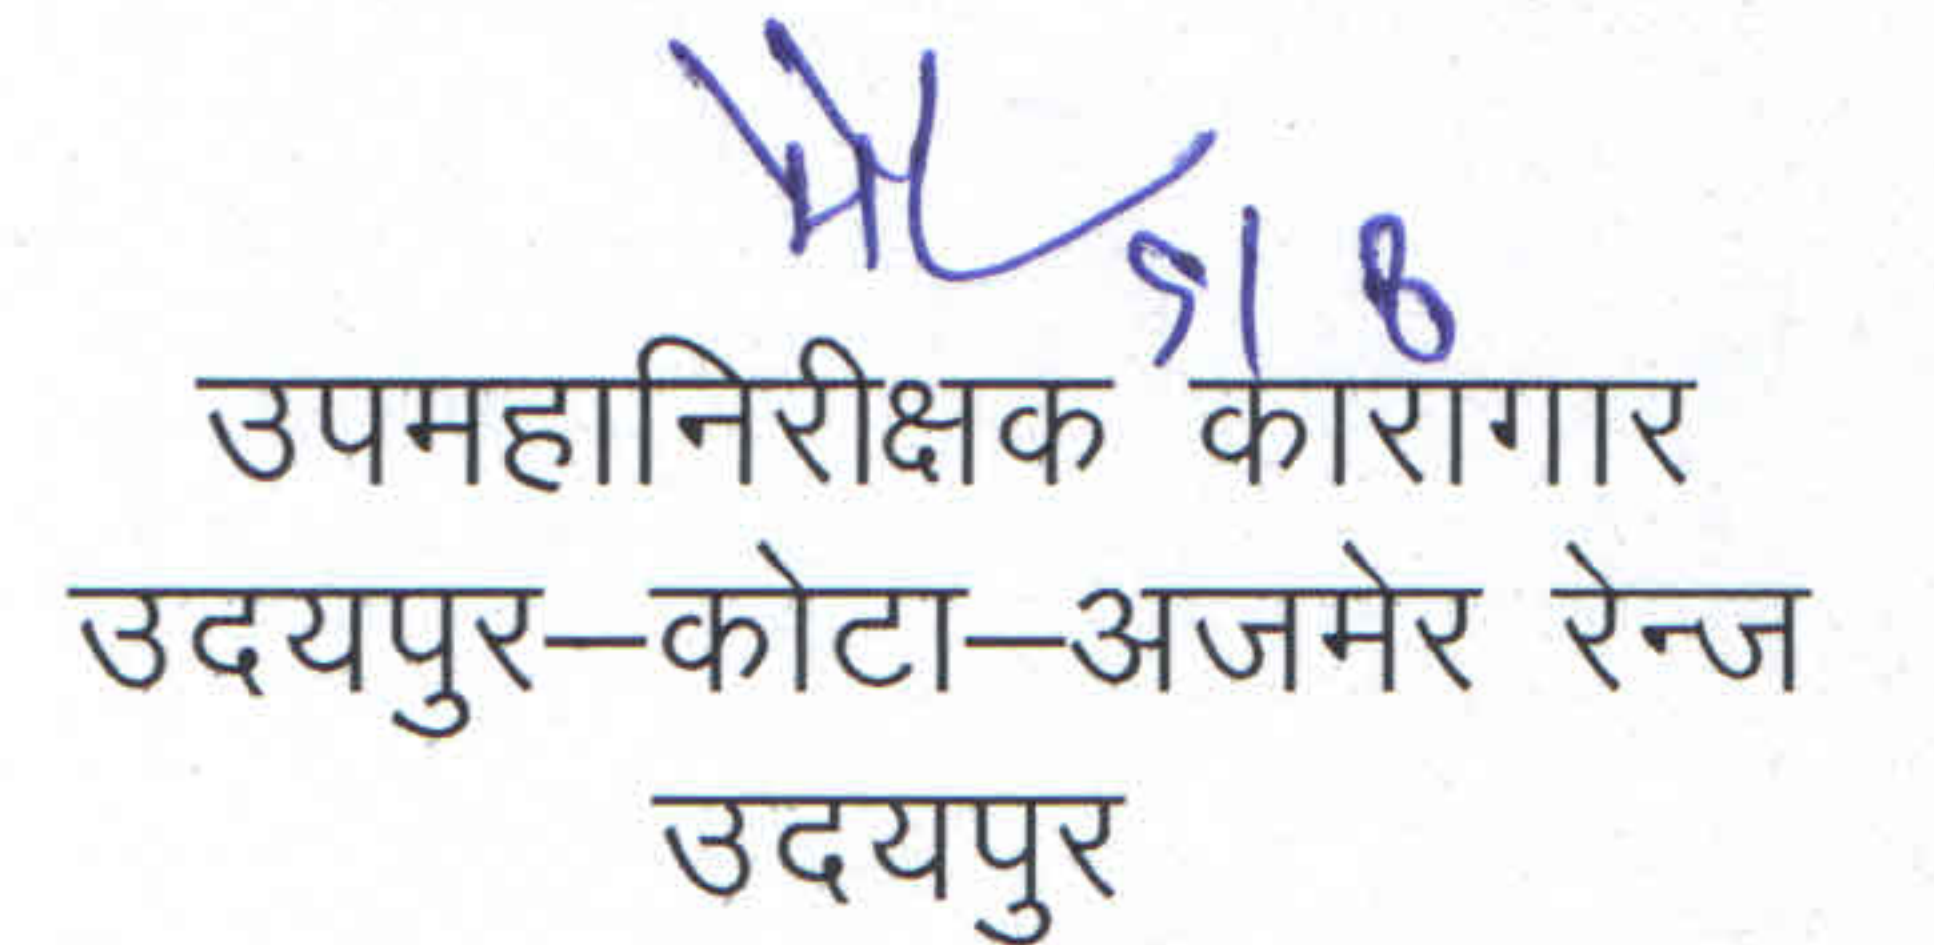 उपमहानिरीक्षक कारागार
उदयपुर–कोटा–अजमेर रेन्ज
उदयपुर